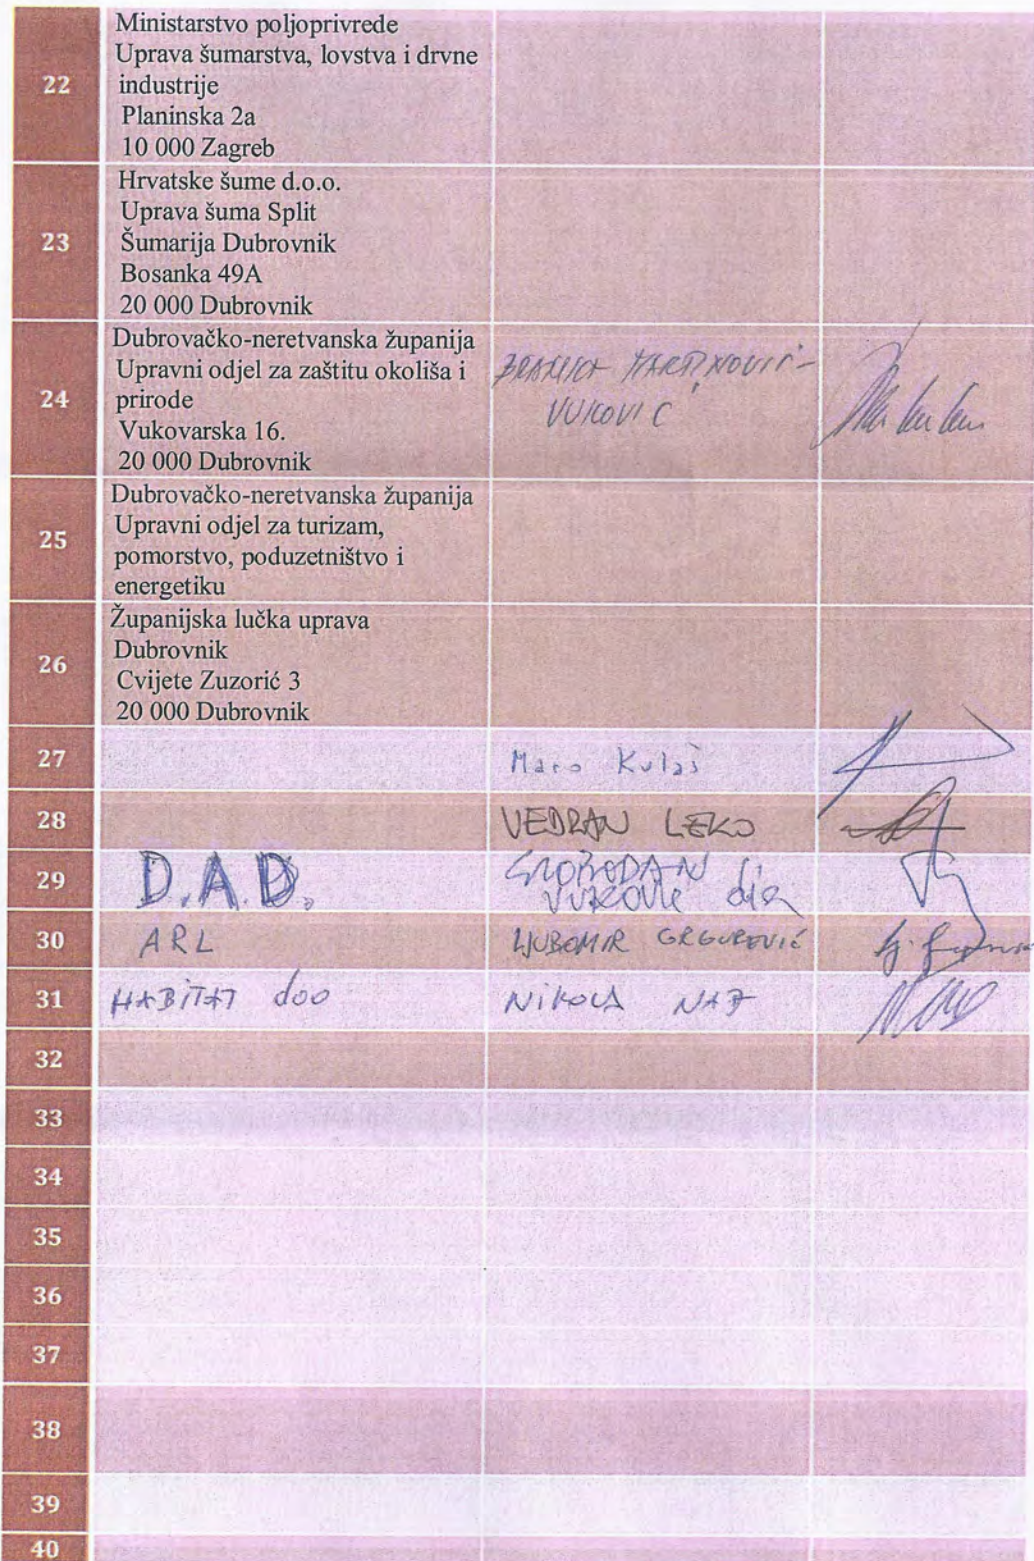 22
Ministarstvo poljoprivrede
Uprava šumarstva, lovstva i drvne
industrije
Planinska 2a
10 000 Zagreb
23
Hrvatske šume d.o.o.
Uprava šuma Split
Šumarija Dubrovnik
Bosanka 49A
20 000 Dubrovnik
24
Dubrovačko-neretvanska županija
Upravni odjel za zaštitu okoliša i
prirode
Vukovarska 16.
20 000 Dubrovnik
MARTINOVIĆ-
VUKOVIĆ
25
Dubrovačko-neretvanska županija
Upravni odjel za turizam,
pomorstvo, poduzetništvo i
energetiku
26
Županijska lučka uprava
Dubrovnik
Cvijete Zuzorić 3
20 000 Dubrovnik
27
Maro Kulaš
28
VEDRAN LEKO
29
D.A.D.
SLOBODAN
VUKOVIĆ dia
30
ARL
LJUBOMIR GRGUREVIĆ
31
HABITAT doo
NIKOLA NAĐ
32
33
34
35
36
37
38
39
40